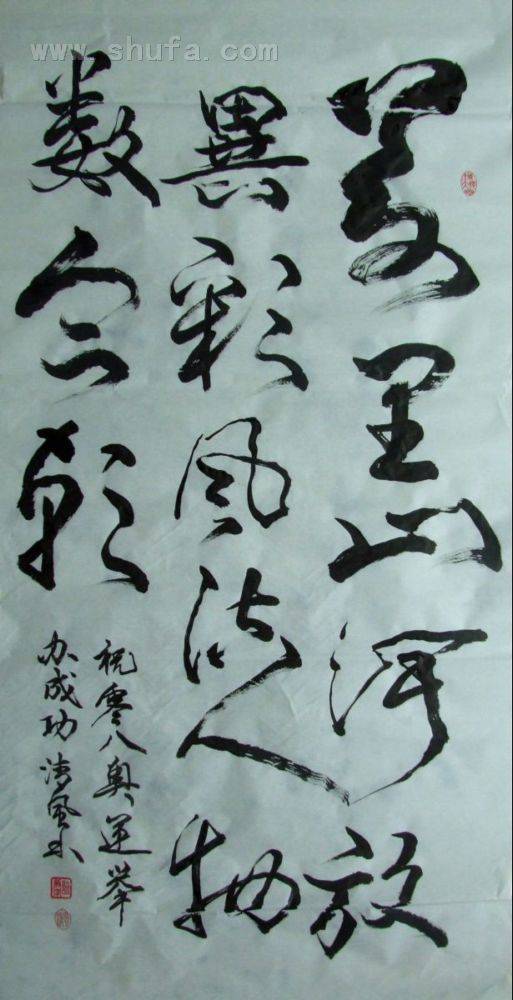 www.shufa.com
萬里山河放
異彩风流人物
数今朝
祝零八奥运举
办成功 清風书